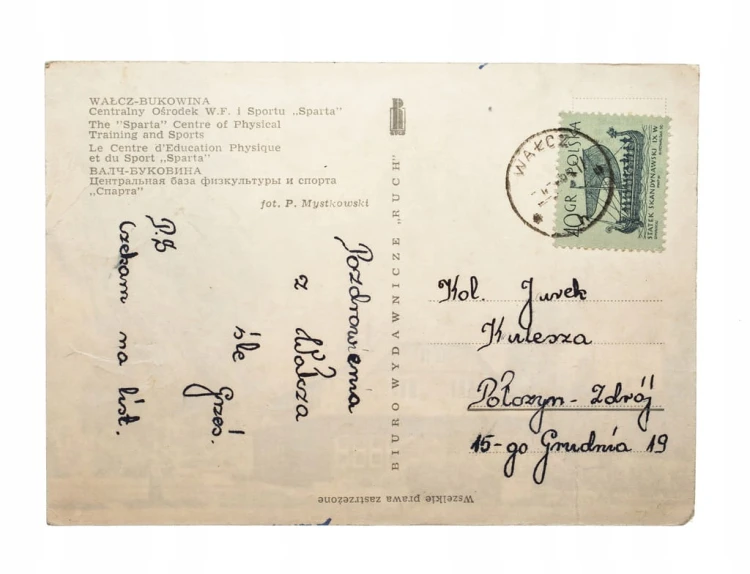 WAŁCZ-BUKOWINA
Centralny Ośrodek W.F. i Sportu „Sparta"
The "Sparta" Centre of Physical
Training and Sports
Le Centre d'Education Physique
et du Sport „Sparta"
ВАЛЧ-БУКОВИНА
Центральная база физкультуры и спорта
„Спарта"
fot. P. Mystkowski
Pozdrowienia
z Wałcza
śle Grześ.
P.S
Czekam na list.
BIURO WYDAWNICZE „RUCH"
Wszelkie prawa zastrzeżone
WAŁCZ
40 GR POLSKA
STATEK SKANDYNAWSKI IX W
Kol. Jurek
Kulesza
Połczyn-Zdrój
15-go Grudnia 19